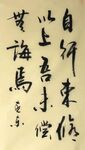 自行束脩
以上吾未嘗
無誨焉